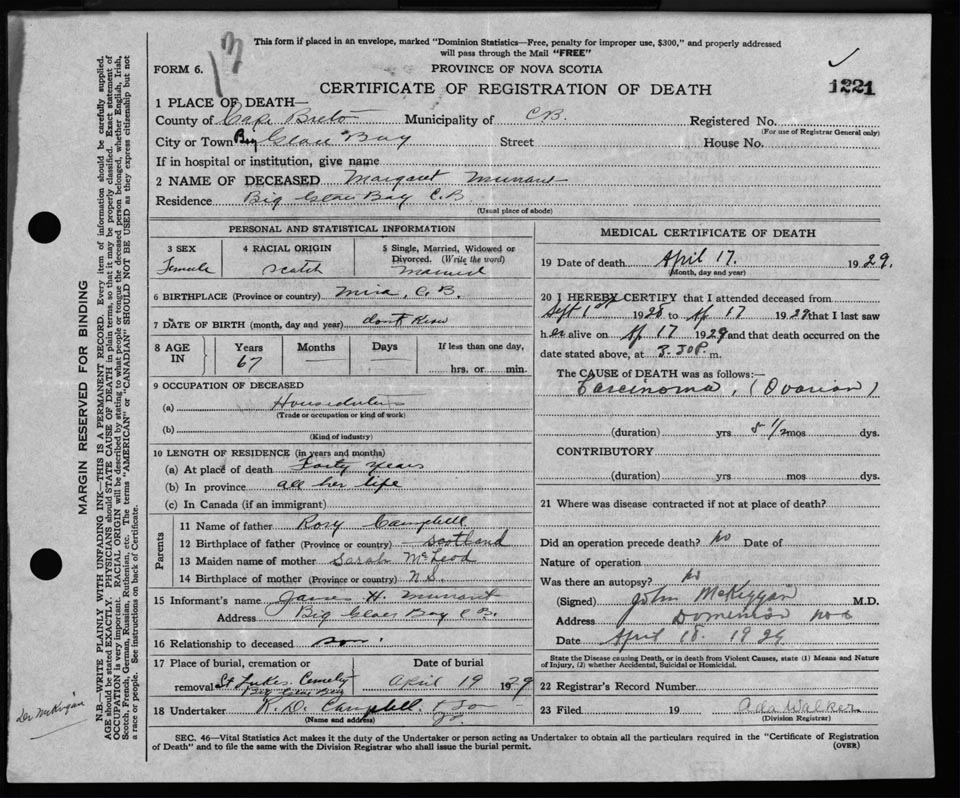 13
This form if placed in an envelope, marked "Dominion Statistics—Free, penalty for improper use, $300," and properly addressed
will pass through the Mail "FREE"
FORM 6.
PROVINCE OF NOVA SCOTIA
CERTIFICATE OF REGISTRATION OF DEATH
1221
1 PLACE OF DEATH—
County of Cape Breton Municipality of C.B. Registered No.
(For use of Registrar General only)
City or Town Big Glace Bay Street House No.
If in hospital or institution, give name
2 NAME OF DECEASED Margaret
Residence Big Glace Bay C.B
(Usual place of abode)
PERSONAL AND STATISTICAL INFORMATION
3 SEX
Female
4 RACIAL ORIGIN
Scotch
5 Single, Married, Widowed or
Divorced. (Write the word)
Married
6 BIRTHPLACE (Province or country) Mira, C.B.
7 DATE OF BIRTH (month, day and year) dont Know
8 AGE
IN
Years
67
Months
Days
If less than one day,
hrs. or min.
9 OCCUPATION OF DECEASED
(a) Houseduties
(Trade or occupation or kind of work)
(b)
(Kind of industry)
10 LENGTH OF RESIDENCE (in years and months)
(a) At place of death Forty years
(b) In province all her life
(c) In Canada (if an immigrant)
Parents
11 Name of father Rory Campbell
12 Birthplace of father (Province or country) Scotland
13 Maiden name of mother Sarah McLeod
14 Birthplace of mother (Province or country) N.S.
15 Informant's name James H.
Address Big Glace Bay C.B.
16 Relationship to deceased son.
17 Place of burial, cremation or
removal St Lukes Cemetry
Big Glace Bay
Date of burial
April 19 1929
18 Undertaker K. D. Campbell &
(Name and address)
MEDICAL CERTIFICATE OF DEATH
19 Date of death April 17. 1929.
(Month, day and year)
20 I HEREBY CERTIFY that I attended deceased from
Sept 1st 1928 to Ap 17 1929 that I last saw
her alive on Ap 17 1929 and that death occurred on the
date stated above, at 3.30 P. m.
The CAUSE of DEATH was as follows:—
Carcinoma, (Ovarian)
(duration) yrs 8 1/2 mos dys.
CONTRIBUTORY
(duration) yrs mos dys.
21 Where was disease contracted if not at place of death?
Did an operation precede death? no Date of
Nature of operation
Was there an autopsy? no
(Signed) John McKiggan M.D.
Address Dominion
Date April 18. 1929
State the Disease causing Death, or in death from Violent Causes, state (1) Means and Nature
of Injury, (2) whether Accidental, Suicidal or Homicidal.
22 Registrar's Record Number
23 Filed 19 Ada Walker
(Division Registrar)
SEC. 46—Vital Statistics Act makes it the duty of the Undertaker or person acting as Undertaker to obtain all the particulars required in the "Certificate of Registration
of Death" and to file the same with the Division Registrar who shall issue the burial permit.
(OVER)
MARGIN RESERVED FOR BINDING
N.B.—WRITE PLAINLY WITH UNFADING INK—THIS IS A PERMANENT RECORD. Every item of information should be carefully supplied.
AGE should be stated EXACTLY. PHYSICIANS should STATE CAUSE OF DEATH in plain terms, so that it may be properly classified. Exact statement of
OCCUPATION is very important. RACIAL ORIGIN will be described by stating to what people or tongue the deceased person belonged, whether English, Irish,
Scotch, French, German, Russian, Ruthenian, etc. The terms "AMERICAN" or "CANADIAN" SHOULD NOT BE USED as they express citizenship but not
a race or people. See instructions on back of Certificate.